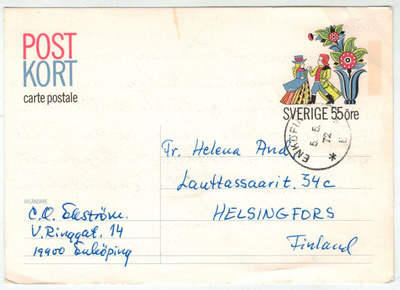 POST
KORT
carte postale
SVERIGE 55 öre
5. 5. 72
Fr. Helena And
Lauttassaarit. 34c
HELSINGFORS
Finland
AVSÄNDARE
C.O. Ekström.
V. Ringgat. 14
19900 Enköping